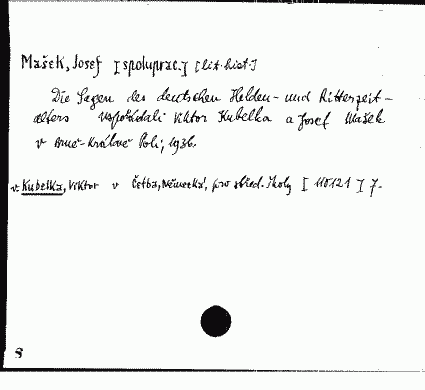 Mašek, Josef [spoluprac.] [lit. hist.]
Die Sagen des deutschen Helden- und Ritterzeit-
alters uspořádali Viktor Kubelka a Josef Mašek
v Brně-Králově Poli, 1936.
v. Kubelka, Viktor v Četba, Německá, pro střed. školy [110121] 7.
8